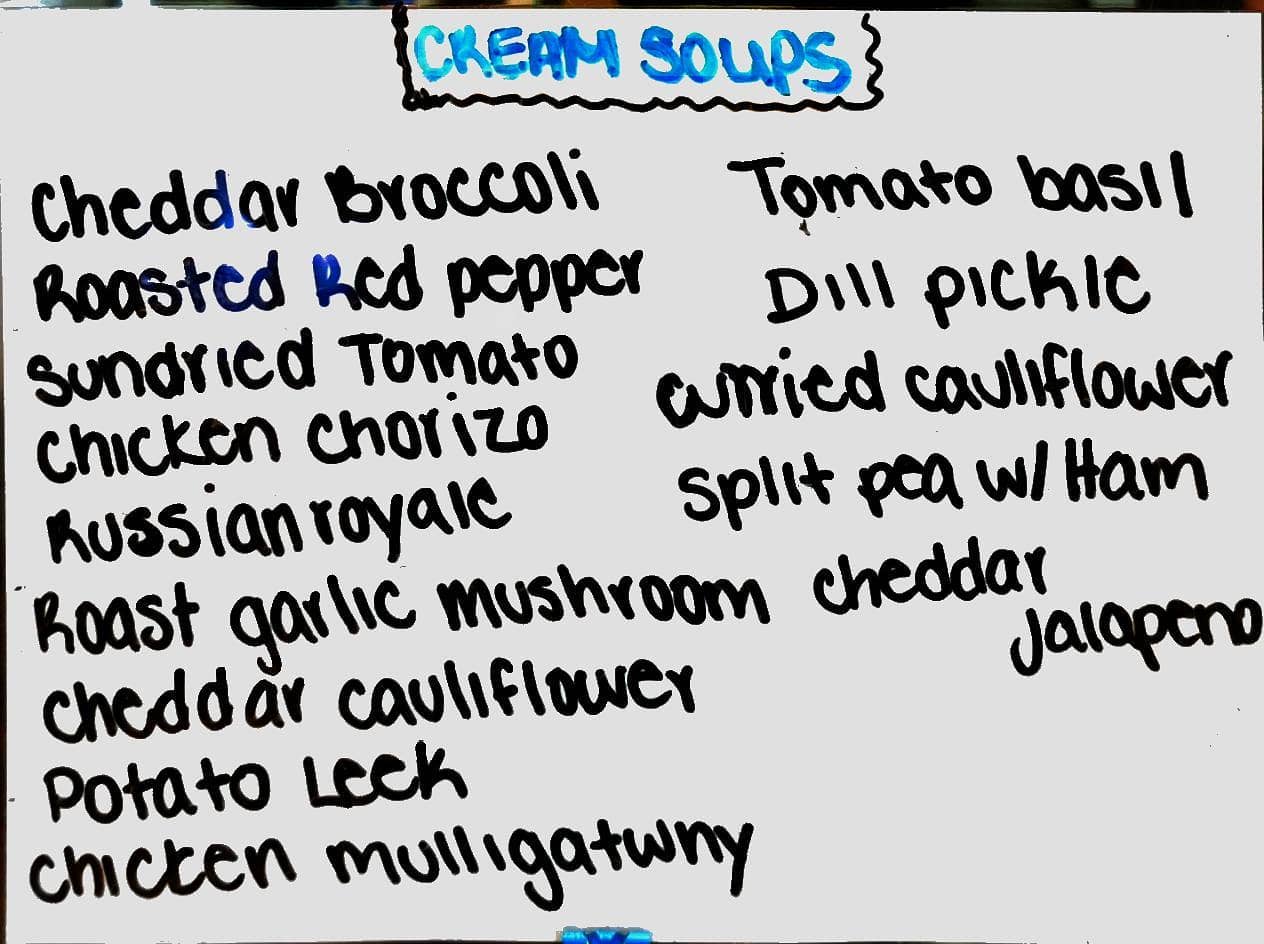 CREAM SOUPS
Cheddar Broccoli
Roasted Red pepper
Sundried Tomato
Chicken Chorizo
Russian royale
Roast garlic mushroom
Cheddar cauliflower
Potato Leek
Chicken mulligatwny
Tomato basil
Dill pickle
curried cauliflower
Split pea w/ Ham
cheddar
jalapeno